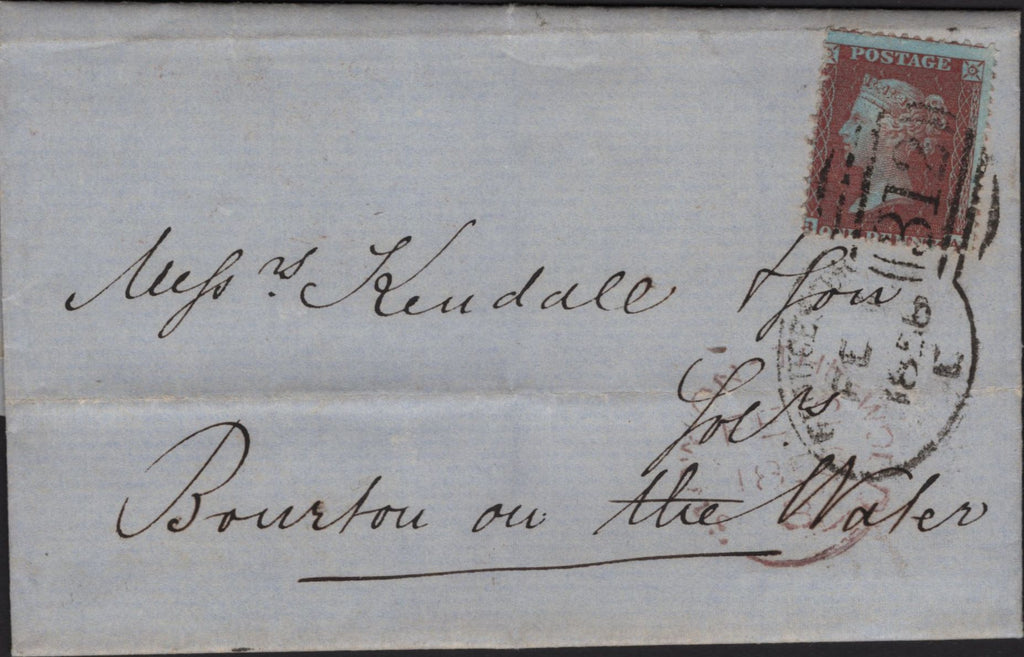 POSTAGE
312
Mess.rs Kendall & Son
Sol.rs
Bourton on the Water
FE
1856